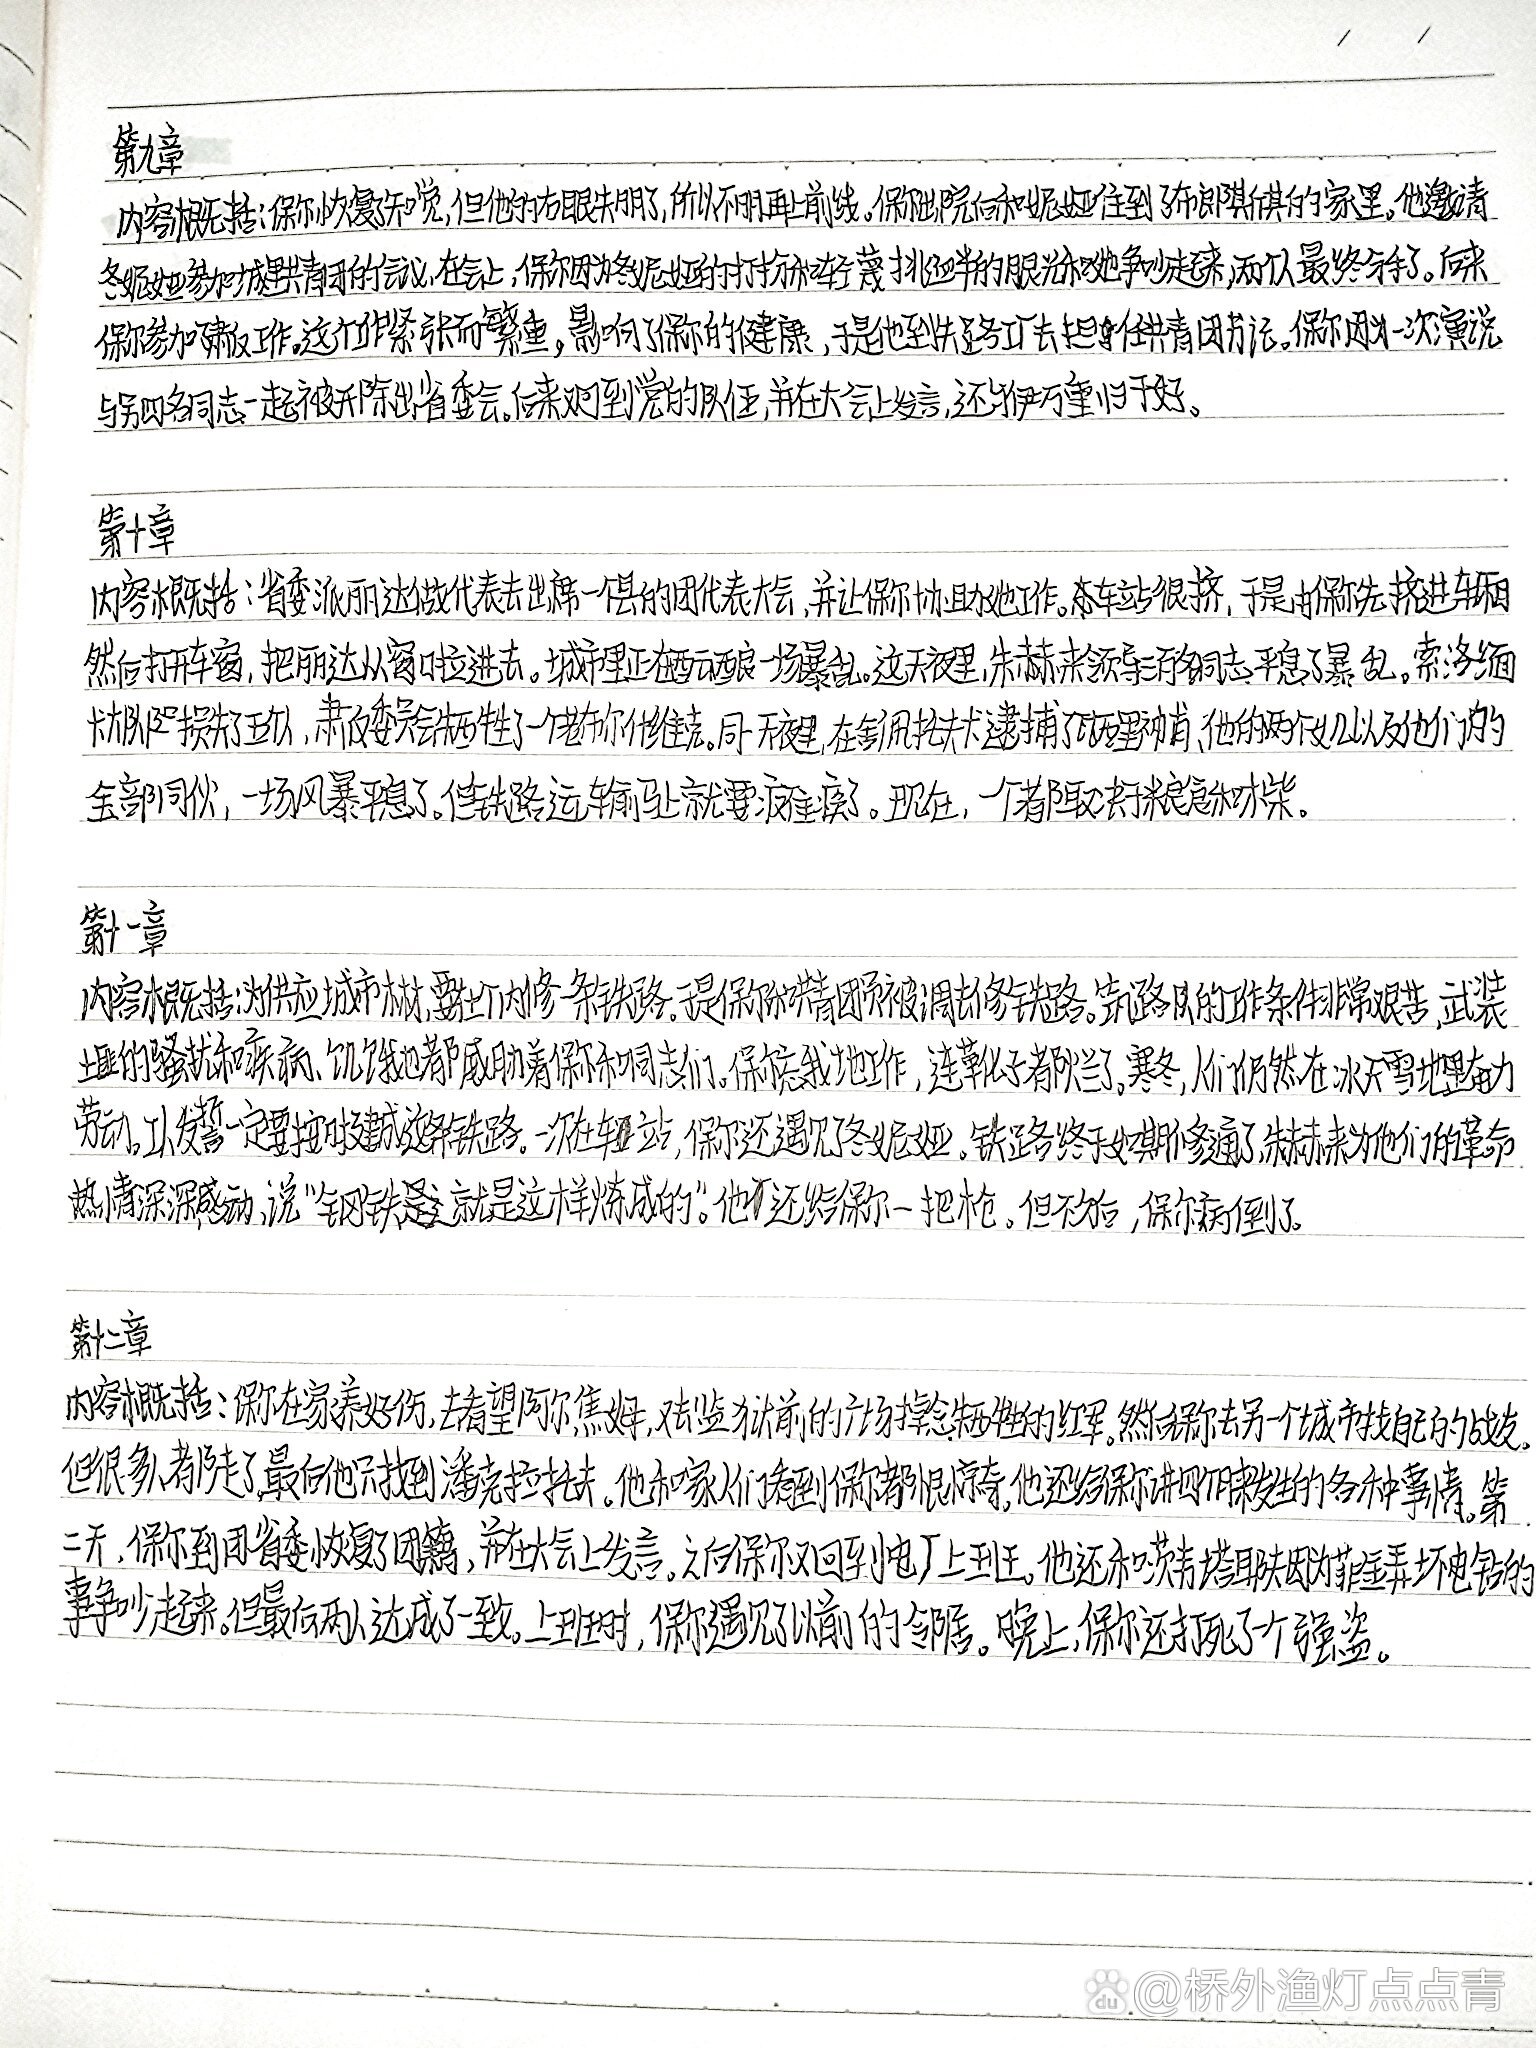 第九章
内容概括：保尔恢复了知觉，但他的右眼失明了，所以不用再上前线。保尔出院后和妮娅住到了布郎斯基的的家里。他邀请
冬妮娅参加城里共青团的会议，在会上，保尔因为冬妮娅的打扮和轻蔑挑逗半的眼光和她争吵起来，两个人最终分手了。后来
保尔参加肃反工作。这个工作紧张而繁重，影响了保尔的健康，于是他到铁路工厂去担任共青团书记。保尔因为一次演说
与另四名同志一起被开除出省委会。后来又回到党的队伍，并在大会上发言，还与伊万重归于好。
第十章
内容概括：省委派丽达做代表去出席一个县的团代表大会，并让保尔协助她工作。车站很挤，于是由保尔先挤进车厢
然后打开车窗，把丽达从窗口拉进去。城市里正在酝酿一场暴乱。这天夜里，朱赫来领导三百名同志平息了暴乱。索洛缅
卡部队区损失了五个人，肃反委员会牺牲了一个老布尔什维克。同一天夜里，在舍佩托夫卡逮捕了瓦西里神甫、他的两个女儿以及他们的
全部同伙，一场风暴平息了。但铁路运输马上就要瘫痪了。现在，一个都取决于粮食和木柴。
第十一章
内容概括：为供应城市木材，要在个内修一条铁路。于是保尔和共青团员被调去修铁路。筑路队的工作条件非常艰苦，武装
土匪的骚扰和疾病、饥饿也都威胁着保尔和同志们。保尔忘我地工作，连靴子都烂了。寒冬，人们仍然在冰天雪地里奋力
劳动。以发誓一定要按时建成这条铁路。一次在车站，保尔还遇见了冬妮娅。铁路终于如期修通了，朱赫来为他们的革命
热情深深感动，说“钢铁就是这样炼成的”。他还给保尔一把枪。但不久后，保尔病倒了。
第十二章
内容概括：保尔在家养好伤，去看望阿尔焦姆，又去监狱前的广场悼念牺牲的红军。然后保尔去另一个城市找自己的战友。
但很多人都走了，最后他只找到潘克拉托夫。他和家人们看到保尔都很惊奇，他还给保尔讲四个月来发生的各种事情。第
二天，保尔到团省委恢复了团籍，并在大会上发言。之后保尔又回到电厂上班。他还和茨韦塔耶夫因为菲金弄坏电钻的
事争吵起来。但最后两人达成了一致。上班时，保尔遇见了以前的邻居。晚上，保尔还打死了一个强盗。
@桥外渔灯点点青